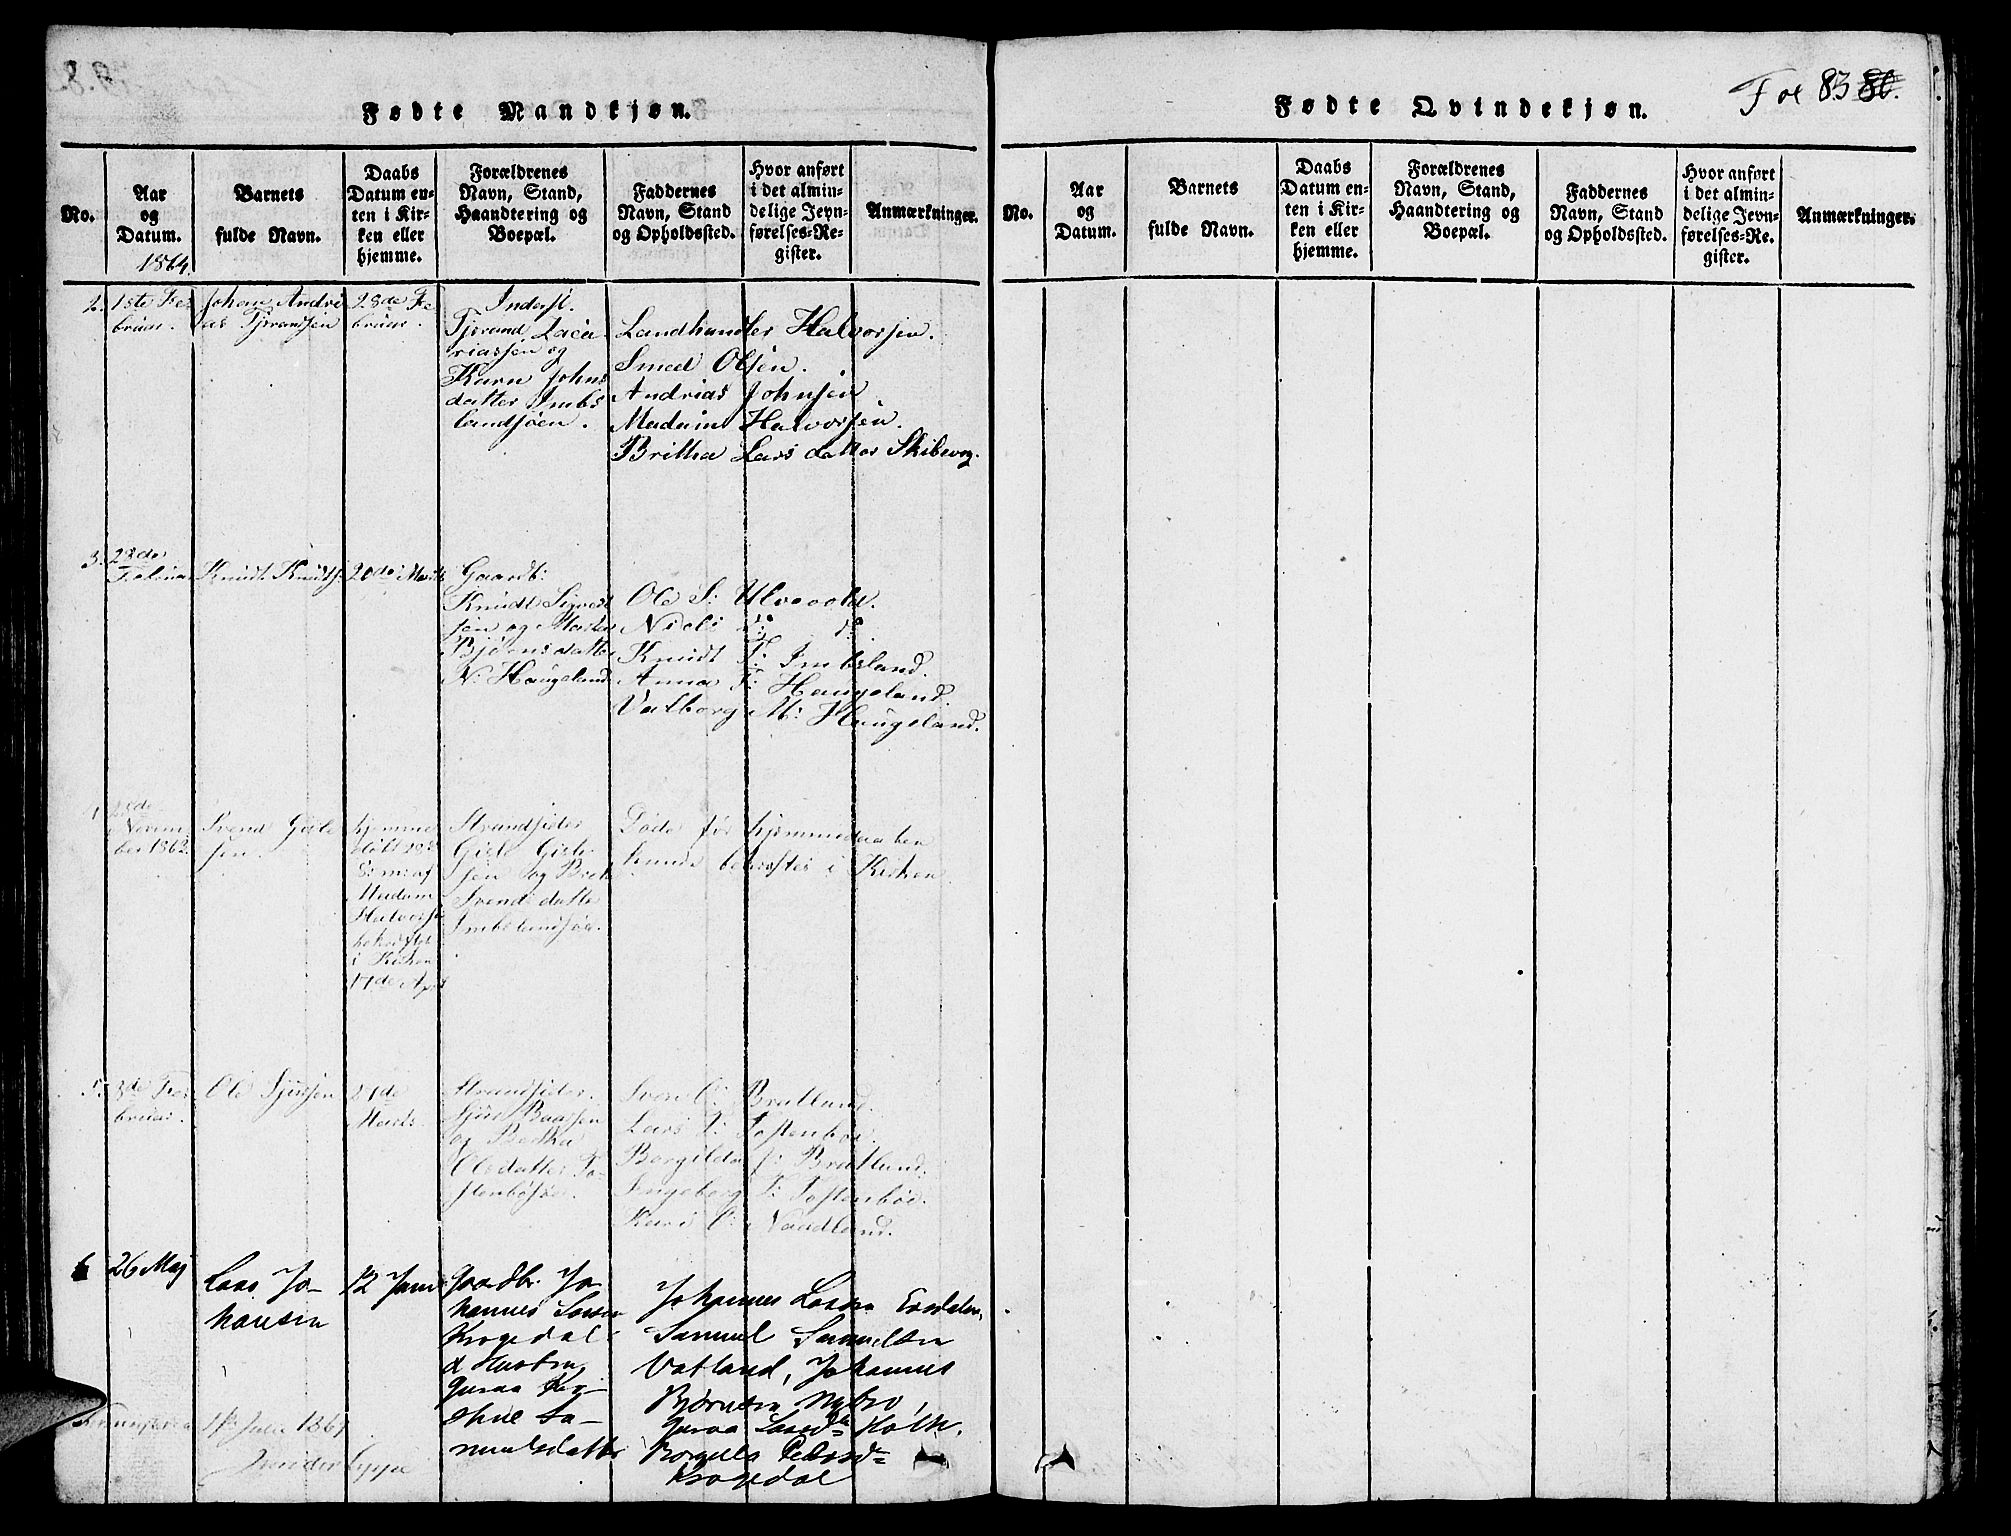 Fødte Mandkjøn.
No.
Aar
og
Datum.
Barnets
fulde Navn.
Daabs
Datum en-
ten i Kir-
ken eller
hjemme.
Forældrenes
Navn, Stand,
Haandtering og
Boepæl.
Faddernes
Navn, Stand
og Opholdssted.
Hvor anført
i det almin-
delige Jevn-
førelses-Re-
gister.
Anmærkninger.
1864.
2.
1ste Fe-
bruar.
Johan Andri
as Tjerandsen
28de Fe
bruar.
Inderst.
Tjerand Zaca
riassen og
Karn Johns
datter Imbs
landsjøen.
Landhandler Halvorsen.
Smed Olsen.
Andrias Johnsen
Madam Halvorsen.
Britha Lars datter Skibevig.
3.
28de
Februar
Knudt Knudts.
20de Marts
Gaardb:
Knudt Sigves
sen og Marten
Bjørnsdatter
N. Haugeland
Ole S: Ulvevold.
Niels do do
Knudt T: Imbsland.
Anna T: Haugeland.
Valborg M: Haugeland.
Novem
ber 1862.
Svend Giele
sen.
hjemme
døbt
af
Madam
Halvorsen
bekræftet
i Kirken
17de April
Strandsider
Giele Giele
sen og Bret
Svendsdatter
Imbslandsjøen.
Døde før hjemmedaaben
kunde bekræftes i Kirken
5.
3de Fe-
bruar.
Ole Sjursen
27de
Marts.
Strandsider.
Sjur Baarsen
og Bertha
Olsdatter To-
stenbøsøen.
Sven O: Bratland.
Lars T: Tostenbøe.
Borgilda J: Bratland.
Ingeborg T: Tostenbøe.
Kari O: Naadland.
6
26 Maj
Lars Jo-
hansen
12 Juni
Gaardbr. Jo-
hannes Larsen
Krogedal
& Hustru
Guraa Ka-
thrie Sa-
muelsdatter
Johannes Larsen Eisdalen,
Samuel Samuelsen
Vatland, Johannes
Bjørnsen Nybro,
Guraa Larsd= Holk.
Borgilla Pedersd=
Krogedal
Juli 1867
Fødte Qvindekjøn.
Fol 83 80.
No.
Aar
og
Datum.
Barnets
fulde Navn.
Daabs
Datum en-
ten i Kir-
ken eller
hjemme.
Forældrenes
Navn, Stand,
Haandtering og
Boepæl.
Faddernes
Navn, Stand
og Opholdssted.
Hvor anført
i det almin-
delige Jevn-
førelses-Re-
gister.
Anmærkninger.